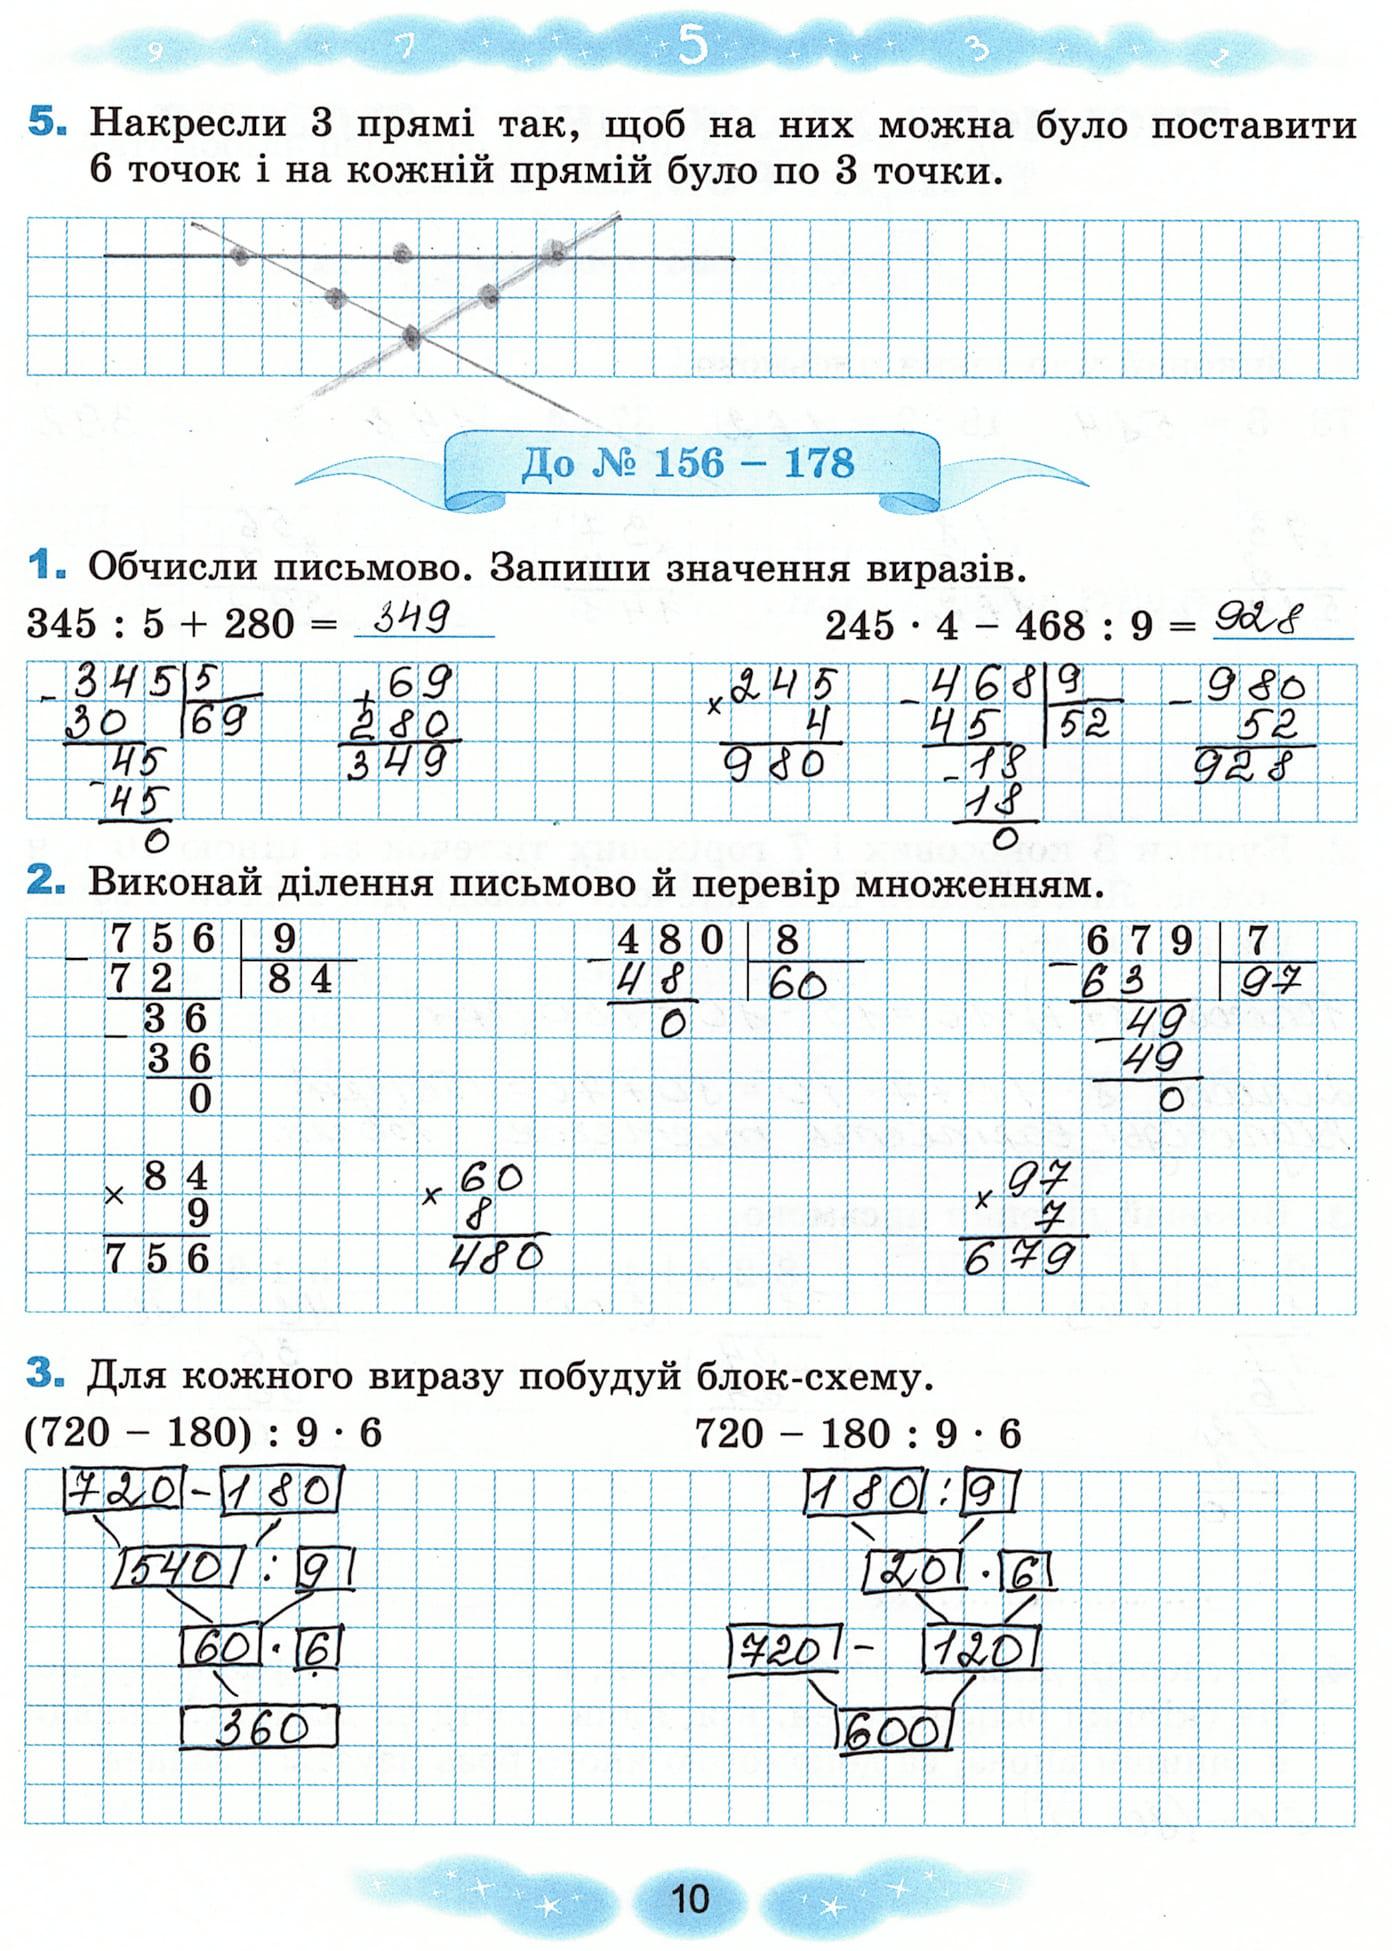 9 7 5 3 1
5. Накресли 3 прямі так, щоб на них можна було поставити
6 точок і на кожній прямій було по 3 точки.
До № 156 – 178
1. Обчисли письмово. Запиши значення виразів.
345 : 5 + 280 = 349 245 · 4 – 468 : 9 = 928
– 345 5 + 69 × 245 – 468 9 – 980
30 69 280 4 45 52 52
– 45 349 980 – 18 928
45 18
0 0
2. Виконай ділення письмово й перевір множенням.
– 756 9 – 480 8 – 679 7
72 84 48 60 63 97
– 36 0 – 49
36 49
0 0
× 84 × 60 × 97
9 8 7
756 480 679
3. Для кожного виразу побудуй блок-схему.
(720 – 180) : 9 · 6 720 – 180 : 9 · 6
720 – 180 180 : 9
540 : 9 20 · 6
60 · 6 720 – 120
360 600
10